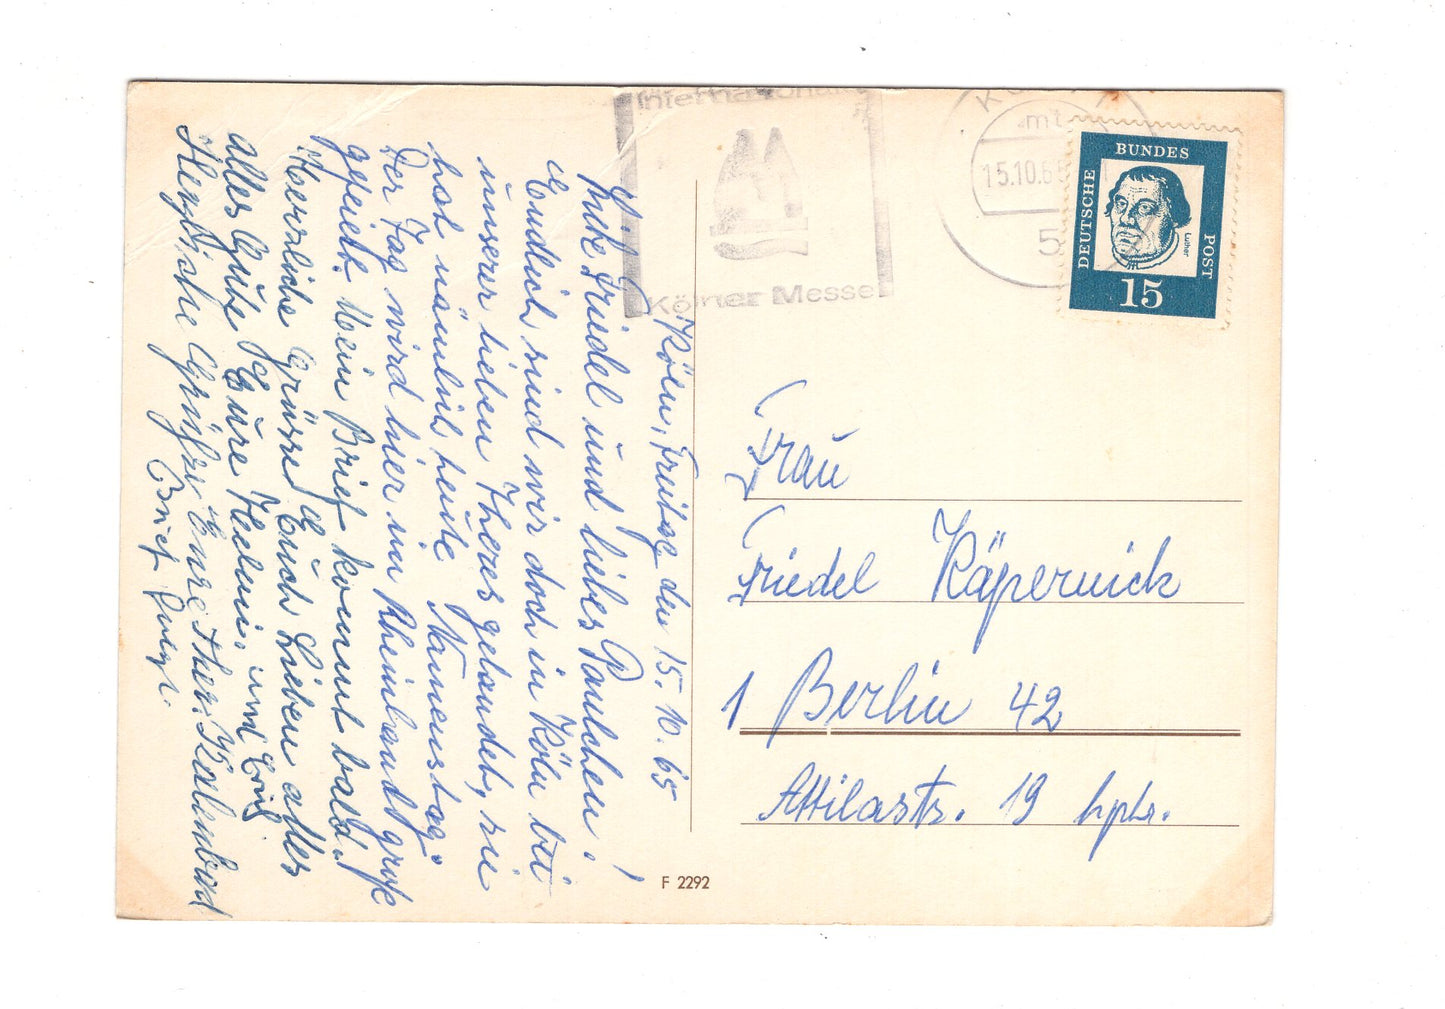 Köln, Freitag den 15.10.65
Friedel und liebes Paulchen!
Endlich sind wir doch in Köln bei
unserer lieben Theres gelandet, sie
hat nämlich heute Namenstag.
Der Tag wird hier im Rheinland groß
gefeiert. Mein Brief kommt bald!
Herzliche Grüsse Euch Lieben alles
alles Gute Eure und
Herzliche Grüße Eure
Brief
Internationale
Kölner Messe
15.10.65
mt
5
DEUTSCHE
BUNDES
POST
Luther
15
Frau
Friedel Käpernick
1 Berlin 42
Attilastr. 19 hptr.
F 2292